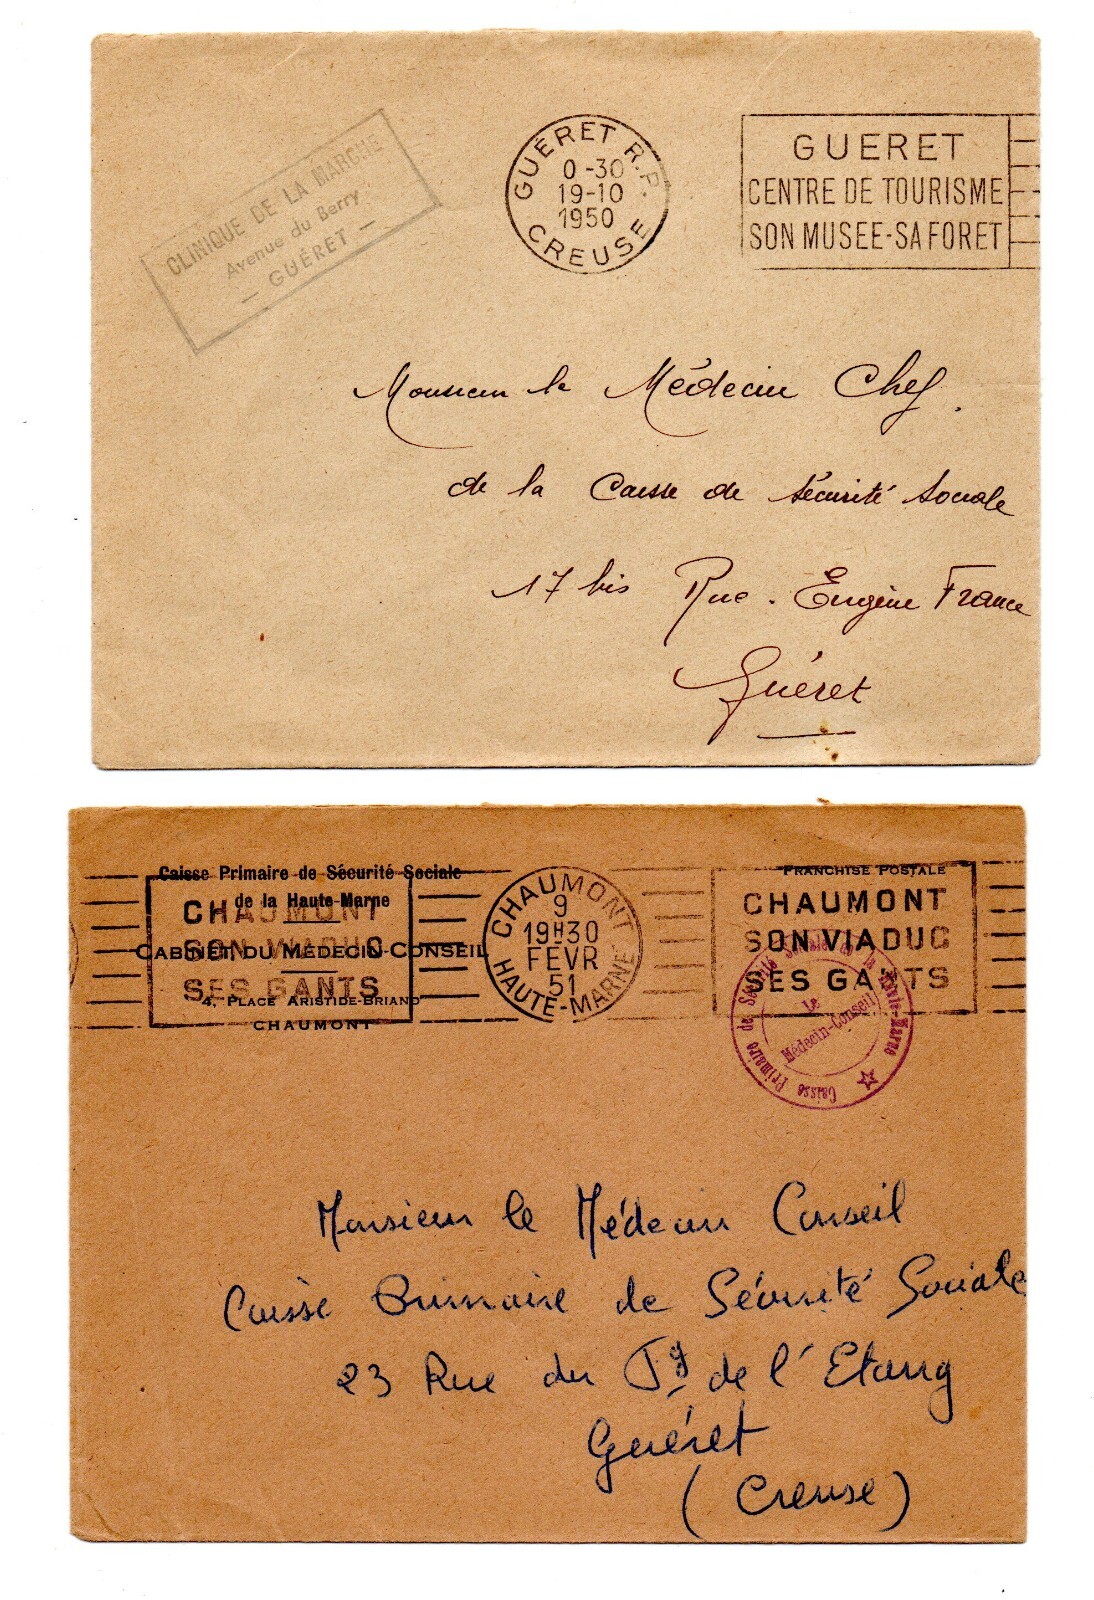 CLINIQUE DE LA MARCHE
Avenue du Berry
— GUÉRET —
GUÉRET R.P.
0-30
19-10
1950
CREUSE
GUERET
CENTRE DE TOURISME
SON MUSEE-SA FORET
Monsieur le Médecin Chef.
de la Caisse de Sécurité Sociale
17 bis Rue. Eugène France
Guéret
Caisse Primaire de Sécurité Sociale
de la Haute-Marne
CABINET DU MÉDECIN-CONSEIL
4, PLACE ARISTIDE-BRIAND
CHAUMONT
CHAUMONT
SON VIADUC
SES GANTS
CHAUMONT
9
19H30
FEVR
51
HAUTE-MARNE
FRANCHISE POSTALE
CHAUMONT
SON VIADUC
SES GANTS
Caisse Primaire de Sécurité Sociale de la Haute-Marne
Le
Médecin-Conseil
Monsieur le Médecin Conseil
Caisse Primaire de Sécurité Sociale
23 Rue du Fg de l'Etang
Guéret
(Creuse)